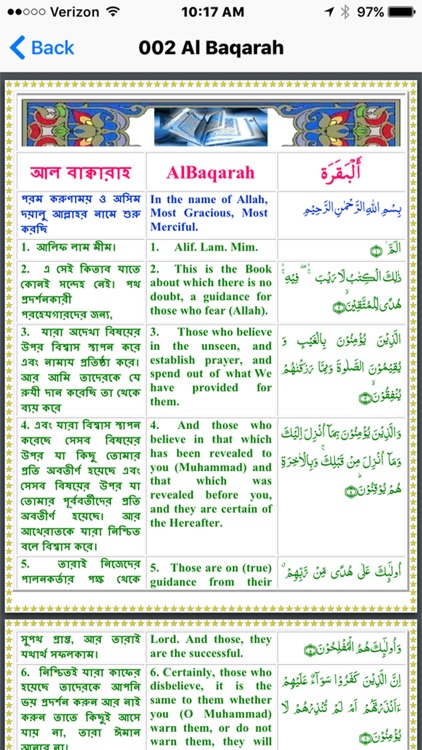 Verizon 10:17 AM 97%
Back
002 Al Baqarah
আল বাক্বারাহ
AlBaqarah
أَلْبَقَرَة
পরম করুণাময় ও অসিম
দয়ালু আল্লাহর নামে শুরু
করছি
In the name of Allah,
Most Gracious, Most
Merciful.
بِسْمِ اللهِ الرَّحْمٰنِ الرَّحِيْمِ
1. আলিফ লাম মীম।
1. Alif. Lam. Mim.
الٓمّٓ ۚ﴿۱﴾
2. এ সেই কিতাব যাতে
কোনই সন্দেহ নেই। পথ
প্রদর্শনকারী
পরহেযগারদের জন্য,
2. This is the Book
about which there is no
doubt, a guidance for
those who fear (Allah).
ذٰلِكَ الْكِتٰبُ لَا رَيْبَ ۛۖۚ فِيْهِ ۛۚ
هُدًى لِّلْمُتَّقِيْنَ ۙ﴿۲﴾
3. যারা অদেখা বিষয়ের
উপর বিশ্বাস স্থাপন করে
এবং নামায প্রতিষ্ঠা করে।
আর আমি তাদেরকে যে
রুযী দান করেছি তা থেকে
ব্যয় করে
3. Those who believe
in the unseen, and
establish prayer, and
spend out of what We
have provided for
them.
الَّذِيْنَ يُؤْمِنُوْنَ بِالْغَيْبِ وَ
يُقِيْمُوْنَ الصَّلٰوةَ وَمِمَّا رَزَقْنٰهُمْ
يُنْفِقُوْنَ ۙ﴿۳﴾
4. এবং যারা বিশ্বাস স্থাপন
করেছে সেসব বিষয়ের
উপর যা কিছু তোমার
প্রতি অবতীর্ণ হয়েছে এবং
সেসব বিষয়ের উপর যা
তোমার পূর্ববর্তীদের প্রতি
অবতীর্ণ হয়েছে। আর
আখেরাতকে যারা নিশ্চিত
বলে বিশ্বাস করে।
4. And those who
believe in that which
has been revealed to
you (Muhammad) and
that which was
revealed before you,
and they are certain of
the Hereafter.
وَالَّذِيْنَ يُؤْمِنُوْنَ بِمَآ اُنْزِلَ اِلَيْكَ
وَمَآ اُنْزِلَ مِنْ قَبْلِكَ ۚ وَبِالْاٰخِرَةِ
هُمْ يُوْقِنُوْنَ ؕ﴿۴﴾
5. তারাই নিজেদের
পালনকর্তার পক্ষ থেকে
5. Those are on (true)
guidance from their
اُولٰٓئِكَ عَلٰى هُدًى مِّنْ رَّبِّهِمْ ٭
সুপথ প্রাপ্ত, আর তারাই
যথার্থ সফলকাম।
Lord. And those, they
are the successful.
وَاُولٰٓئِكَ هُمُ الْمُفْلِحُوْنَ ﴿۵﴾
6. নিশ্চিতই যারা কাফের
হয়েছে তাদেরকে আপনি
ভয় প্রদর্শন করুন আর নাই
করুন তাতে কিছুই আসে
যায় না, তারা ঈমান
আনবে না।
6. Certainly, those who
disbelieve, it is the
same to them whether
you (O Muhammad)
warn them, or do not
warn them, they will
اِنَّ الَّذِيْنَ كَفَرُوْا سَوَآءٌ عَلَيْهِمْ
ءَاَنْذَرْتَهُمْ اَمْ لَمْ تُنْذِرْهُمْ لَا